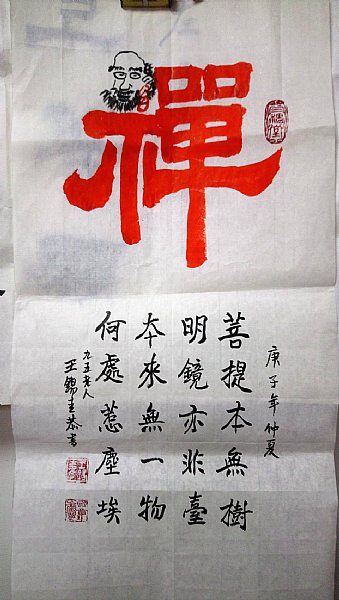 禪
庚子年仲夏
菩提本無樹
明鏡亦非臺
本來無一物
何處惹塵埃
九五老人
王錫圭恭書